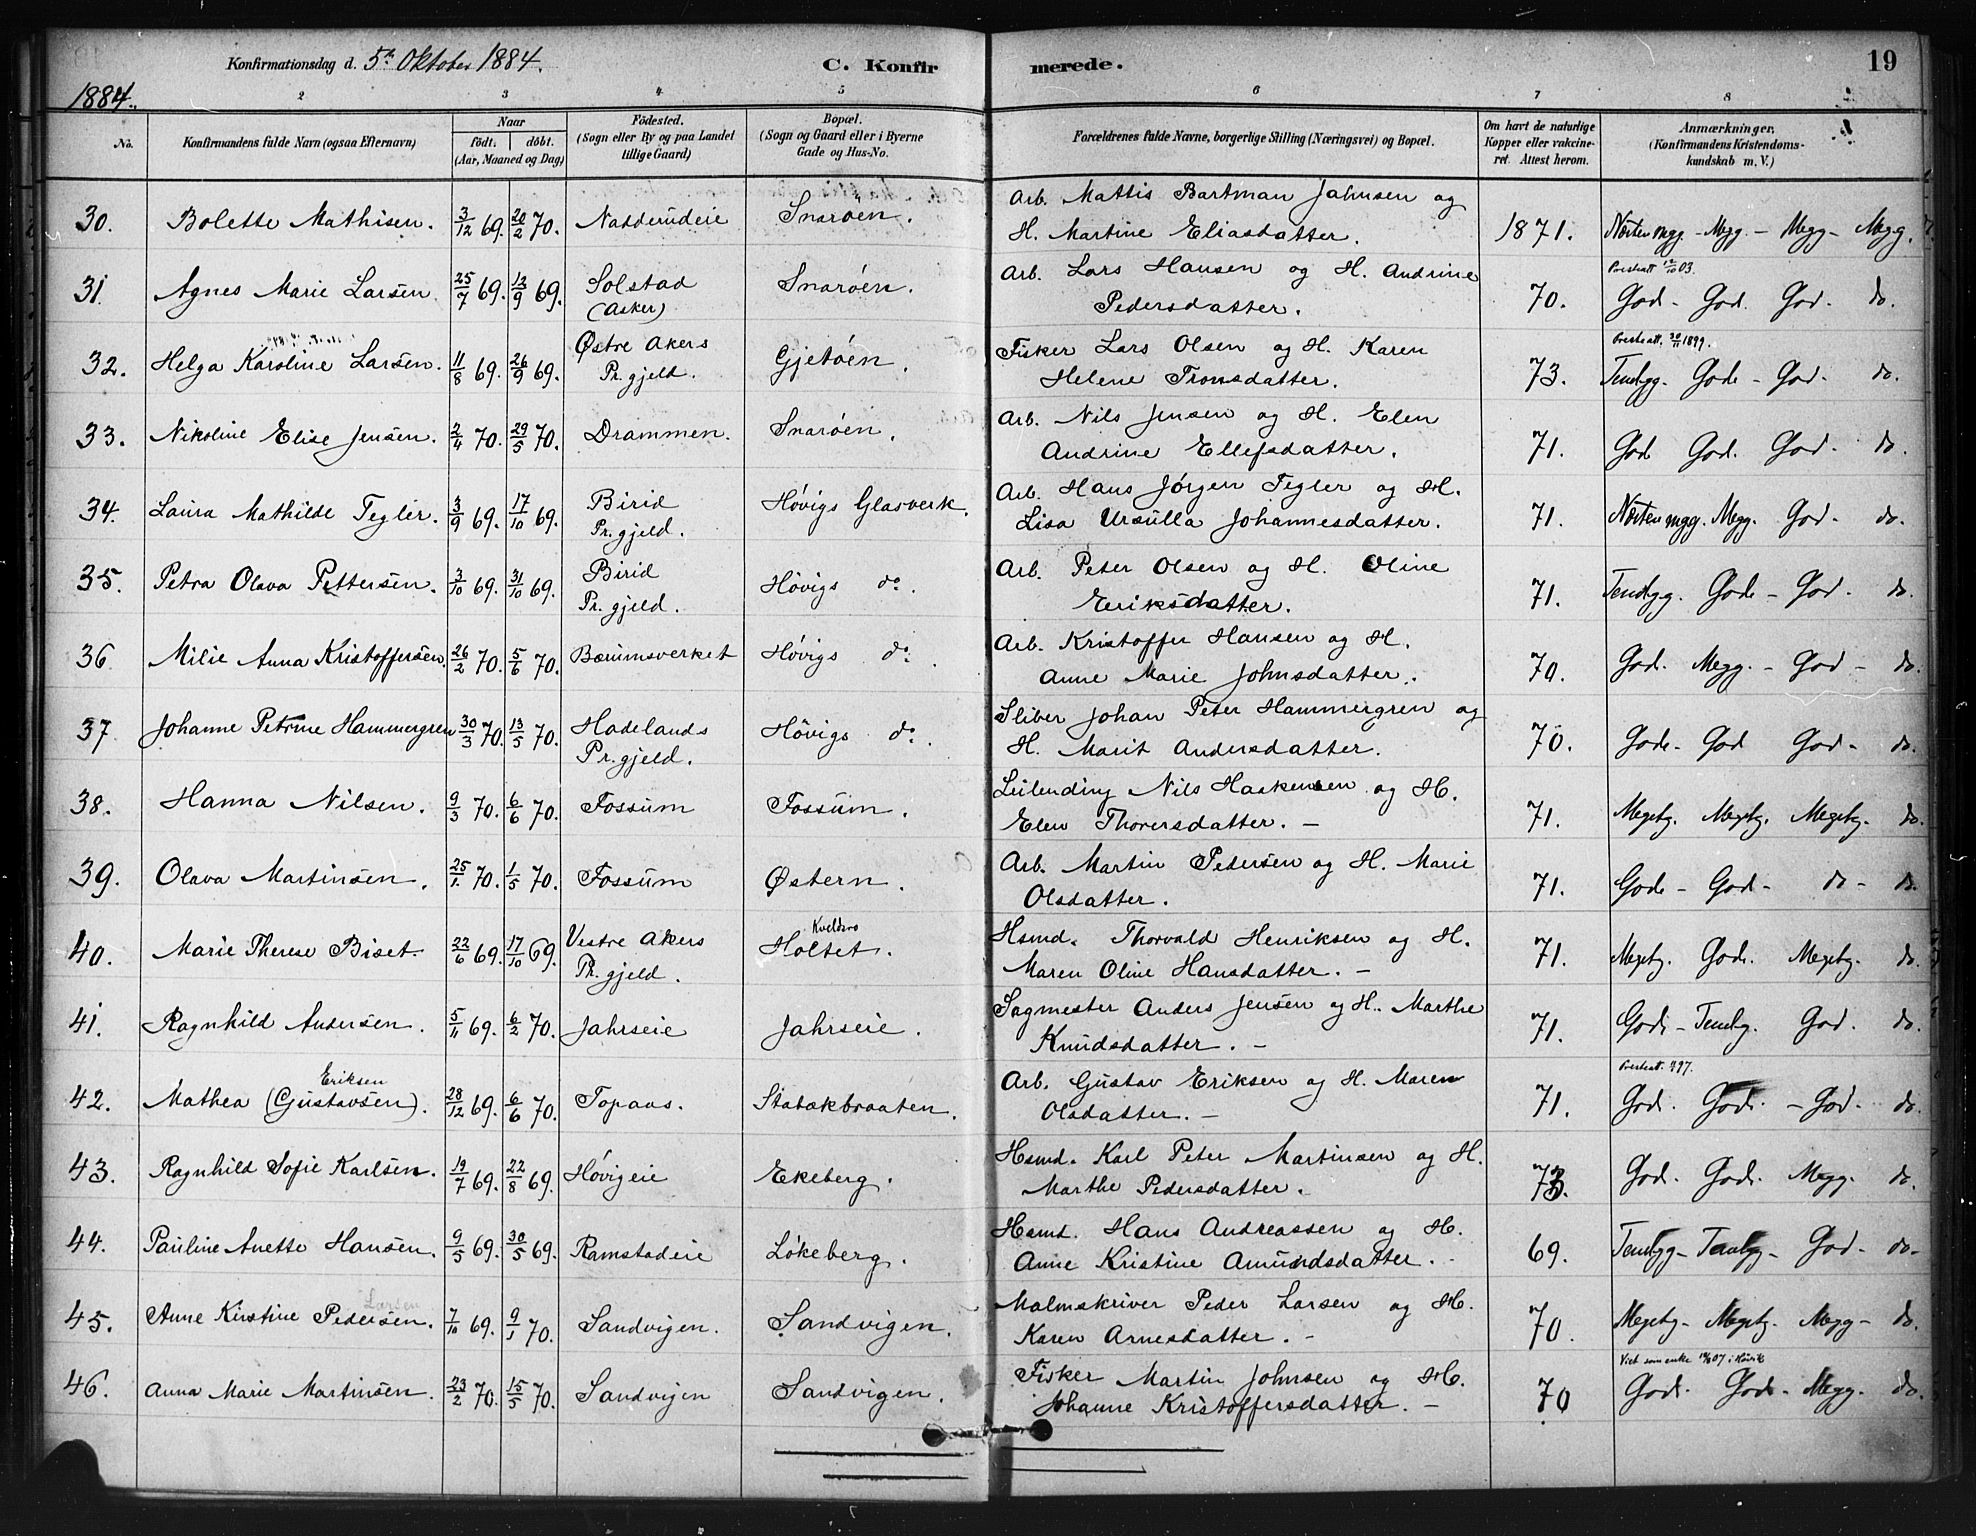 Konfirmationsdag d. 5te Oktober 1884. C. Konfirmerede. 19
1884.
2 3 4 5 6 7 8
No. Konfirmandens fulde Navn (ogsaa Efternavn) Naar født. døbt. (Aar, Maaned og Dag) Fødested. (Sogn eller By og paa Landet tillige Gaard) Bopæl. (Sogn og Gaard eller i Byerne Gade og Hus-No. Forældrenes fulde Navne, borgerlige Stilling (Næringsvei) og Bopæl. Om havt de naturlige Kopper eller vakcineret. Attest herom. Anmærkninger. (Konfirmandens Kristendomskundskab m. V.)
30. Bolette Mathisen. 3/12 69. 20/2 70. Nadderudeie Snarøen. Arb. Mattis Bartman Jahnsen og
H. Martine Eliasdatter. 1871. Næsten mgg. - Megg. - Megg - Megg.
Prestatt 12/10 03.
31. Agnes Marie Larsen. 25/7 69. 12/9 69. Solstad (Asker) Snarøen. Arb. Lars Hansen og H. Andrine
Pedersdatter. 70. God - God. God. do.
Prestatt. 20/11 1899.
32. Helga Karoline Larsen. 11/8 69. 26/9 69. Østre Akers Pr. gjeld. Gjetøen. Fisker Lars Olsen og H. Karen
Helene Tronsdatter. 73. Temgg. God - God. do.
33. Nikoline Elise Jensen. 2/4 70. 29/5 70. Drammen. Snarøen. Arb. Nils Jensen og H. Elen
Andrine Ellefsdatter. 71. God God. God. do
34. Laura Mathilde Tegler. 3/9 69. 17/10 69. Birid Pr. gjeld. Høvigs Glasverk. Arb. Hans Jørgen Tegler og H.
Lisa Ursulla Johannesdatter. 71. Næsten mgg. Megg. God - do.
35. Petra Olava Pettersen. 3/10 69. 31/10 69. Birid Pr. gjeld. Høvigs do. Arb. Peter Olsen og H. Oline
Eeriksdatter. 71. Temgg. God - God. do.
36. Milie Anna Kristoffersen. 26/2 70. 5/6 70. Bærumsverket Høvigs do. Arb. Kristoffer Hansen og H.
Anne Marie Johnsdatter. 70. God. Megg. - God - do
37. Johanne Petrine Hammergren 30/3 70. 13/5 70. Hadelands Pr. gjeld. Høvigs do. Sliber Johan Peter Hammergren og
H. Marit Andersdatter. 70. God - God God - do.
38. Hanna Nilsen. 9/3 70. 6/6 70. Fossum Fossum. Leilending Nils Haakensen og H.
Elen Thorersdatter. - 71. Megetg. Megetg. Megetg. do.
39. Olava Martinsen. 25/1 70. 1/5 70. Fossum Østern. Arb. Martin Pedersen og H. Marie
Olsdatter. 71. God - God - do - do.
40. Marie Therese Biset. 22/6 69. 17/10 69. Vestre Akers Pr. gjeld. Kveldsro Holtet. Hsmd. Thorvald Henriksen og H.
Maren Oline Hansdatter. - 71. Megetg. God. Megetg. do.
41. Ragnhild Andersen. 5/11 69. 6/2 70. Jahrseie Jahrseie. Sagmester Anders Jensen og H. Marthe
Knudsdatter. - 71. God - Temg. God. do.
42. Mathea Eriksen (Gustavsen). 28/12 69. 6/6 70. Topaas. Stabækbraaten. Arb. Gustav Eriksen og H. Maren
Olsdatter. - 71. God. God. - God. do
43. Ragnhild Sofie Karlsen. 19/7 69. 22/8 69. Høvigeie Ekeberg. Hsmd. Karl Peter Martinsen og H.
Marthe Pedersdatter. 73. God. God. Megg. do.
44. Pauline Anette Hansen. 9/5 69. 30/5 69. Ramstadeie Løkeberg. Hsmd. Hans Andreassen og H.
Anne Kristine Amundsdatter. - 69. Temgg - Temg - God - do -
45. Anne Kirstine Pedersen. Larsen 7/10 69. 9/1 70. Sandvigen. Sandvigen. Malmskriver Peder Larsen og H.
Karen Arnesdatter. - 70. Megetg - Megetg. Megg - do.
Viet som enke 07 i Høvik
46. Anna Marie Martinsen. 23/2 70. 15/5 70. Sandvigen Sandvigen. Fisker Martin Johnsen og H.
Johanne Kristoffersdatter. - 70 God. God - Megg. do.